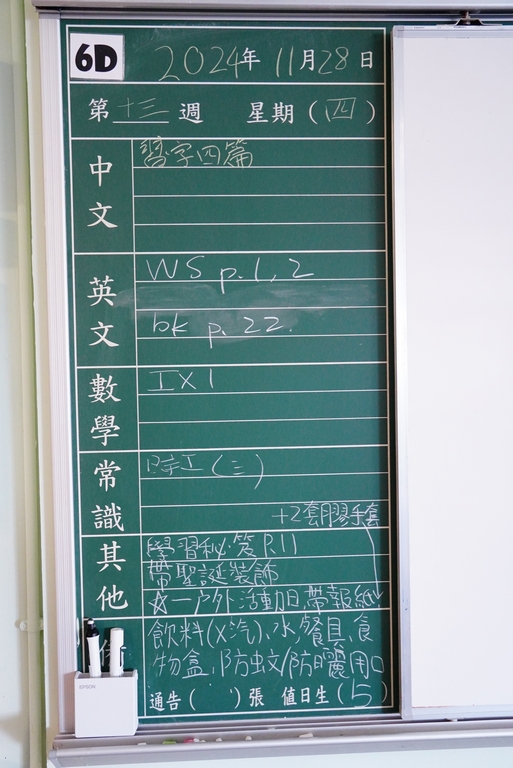 6D 2024年 11月28日
第 十三 週 星期（四）
中文 習字四篇
英文 WS p.1, 2
bk p. 22.
數學 IX 1
常識 (三)
+2套膠手套
其他 學習秘笈 P.11
帶聖誕裝飾
☆一戶外活動日,帶報紙
飲料(X汽),水,餐具,食
物盒,防蚊/防曬用口
EPSON
通告( )張 值日生(5)